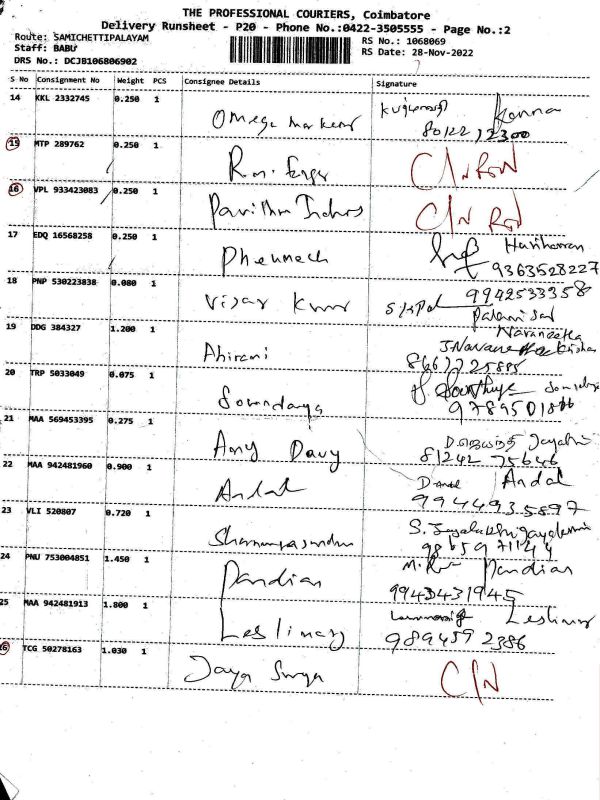 THE PROFESSIONAL COURIERS, Coimbatore
Delivery Runsheet - P20 - Phone No.:0422-3505555 - Page No.:2
Route: SAMICHETTIPALAYAM
Staff: BABU
DRS No.: DCJB106806902
RS No.: 1068069
RS Date: 28-Nov-2022
S No Consignment No Weight PCS Consignee Details Signature
14 KKL 2332745 0.250 1 Omega Kanna
80122 12300
15 MTP 289762 0.250 1 C/N
16 VPL 933423083 0.250 1 Pavithra C/N
17 EDQ 16568258 0.250 1 Hariharan
9363528227
18 PNP 530223838 0.080 1 Vijay Kumar 9942533358
19 DDG 384327 1.200 1 Abirami Navaneetha
20 TRP 5033049 0.075 1 Soundarya
21 MAA 569453395 0.275 1 Amy Davy Jayathi
81242 75646
22 MAA 942481960 0.900 1 Andal Andal
9944935897
23 VLI 520807 0.720 1
24 PNU 753004851 1.450 1 Pandian Pandian
9943431945
25 MAA 942481913 1.800 1 Leslimary
9894592386
26 TCG 50278163 1.030 1 Jaya Surya C/N